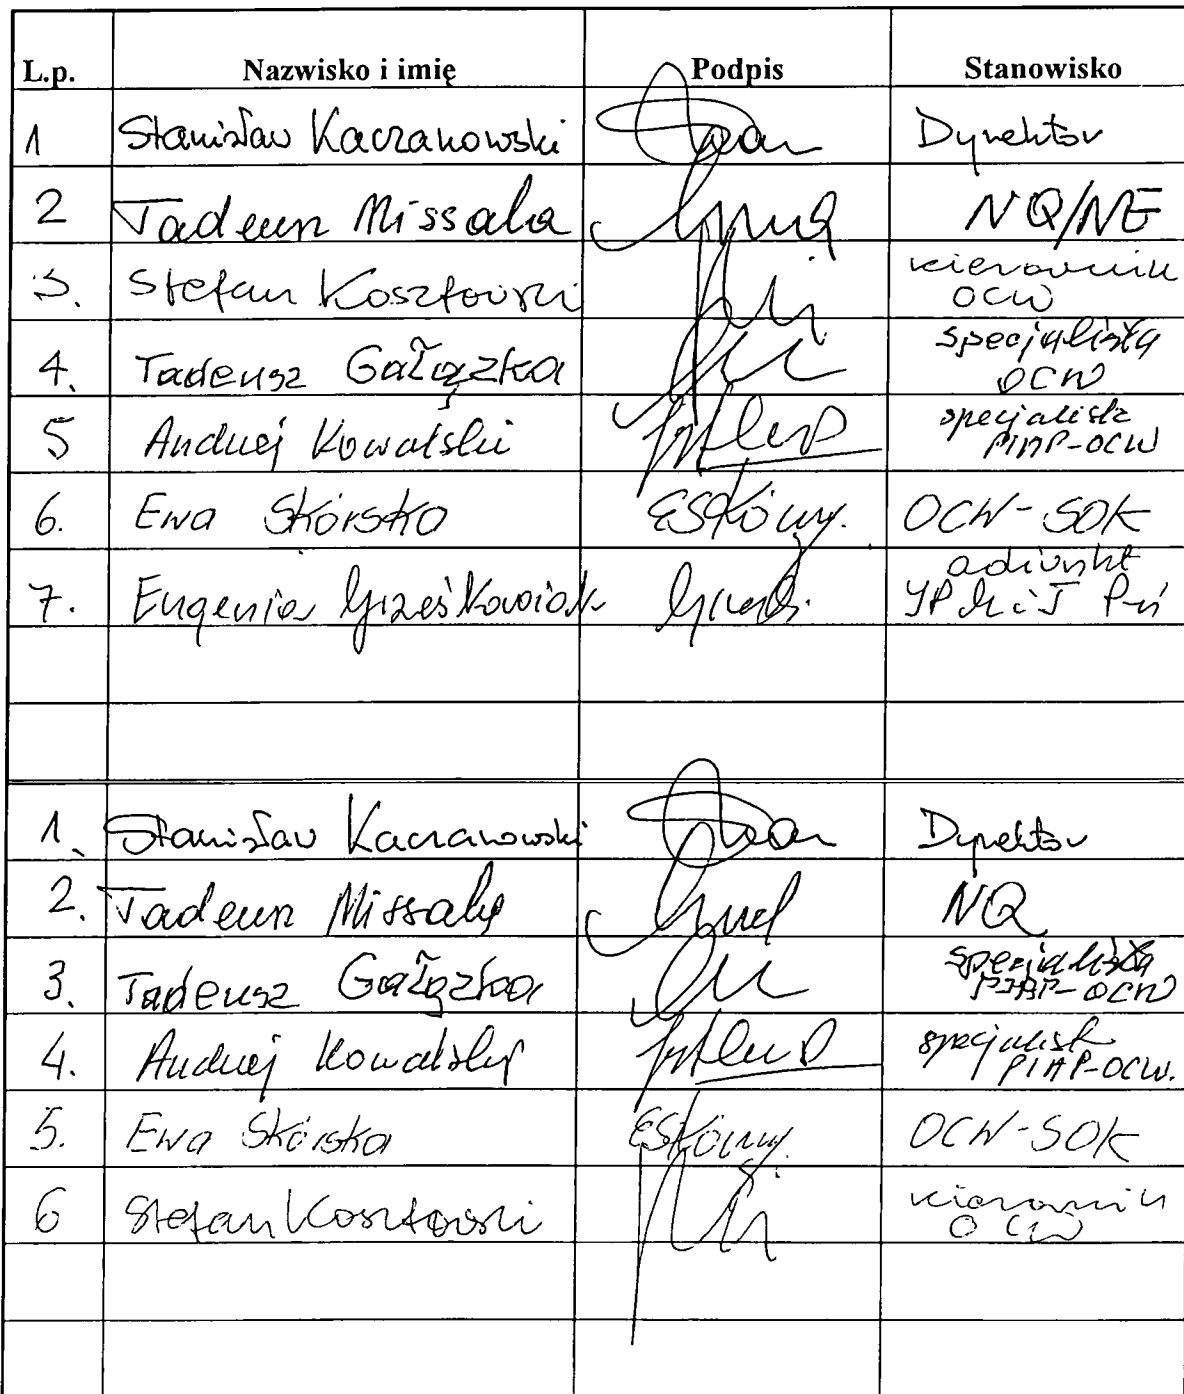 L.p. Nazwisko i imię Podpis Stanowisko
1 Stanisław Kaczanowski Dyrektor
2 Tadeusz Missala NQ/NE
3. Stefan Kosztowski kierownik
OCW
4. Tadeusz Gałązka specjalista
OCW
5 Andrzej Kowalski specjalista
PIAP-OCW
6. Ewa Skórska ESkórs. OCW-SOK
7. Eugenia Grześkowiak adiunkt
1. Stanisław Kaczanowski Dyrektor
2. Tadeusz Missala NQ
3. Tadeusz Gałązka specjalista
PIAP-OCW
4. Andrzej Kowalski specjalist
PIAP-OCW.
5. Ewa Skórska OCW-SOK
6 Stefan Kosztowski kierownik
OCW